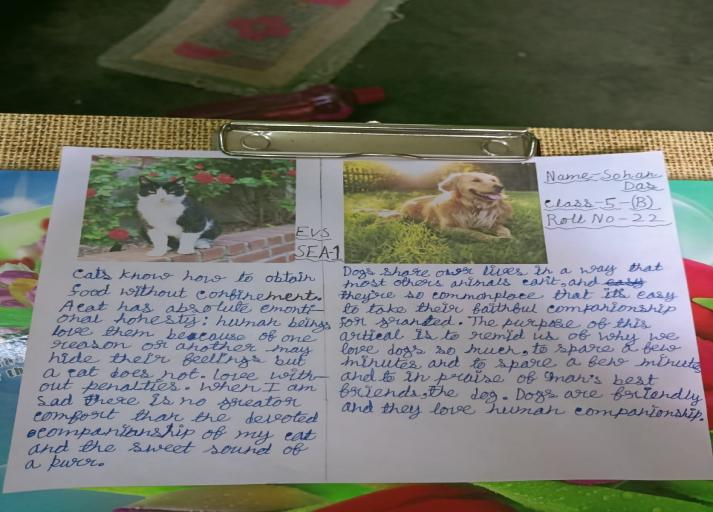 Name-Sohan
Das
Class-5-(B)
Roll No-22
EVS
SEA-1
Cats know how to obtain
food without confinement.
A cat has absolute emoti-
onal honesty: human beings
love them because of one
reason or another may
hide their feelings but
a cat does not. love with-
out penalties. when I am
sad there is no greator
comfort than the devoted
companianship of my cat
and the sweet sound of
a purr.
Dogs share our lives in a way that
most others animals can't, and easy
they're so commonplace that its easy
to take their faithful companionship
for granted. The purpose of this
artical is to remid us of why we
love dogs so much, to spare a few
minutes and to spare a few minutes
and to in praise of man's best
friends, the dog. Dogs are friendly
and they love human companionship.